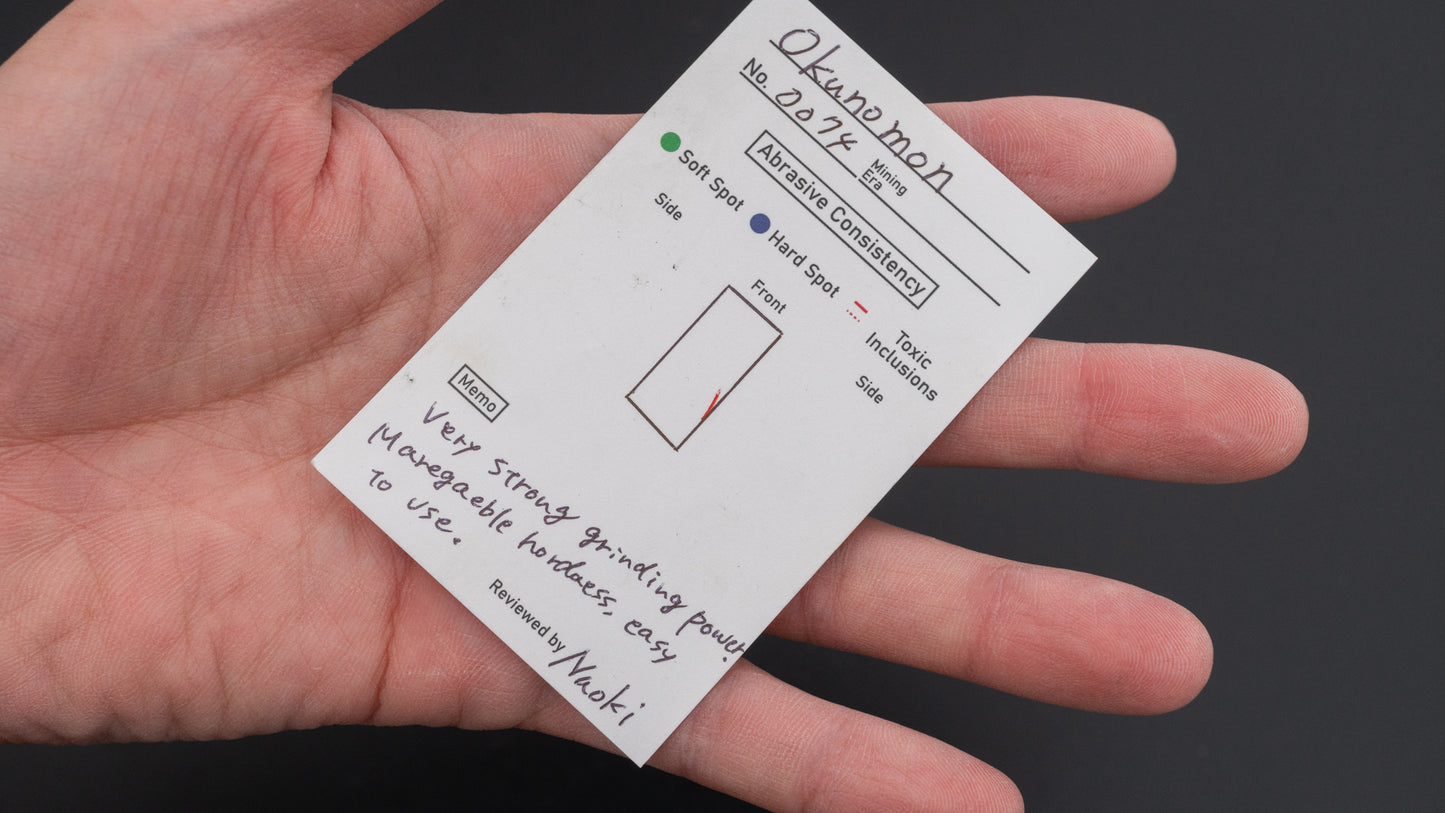 Okunomon
No. 0074 Mining Era
Abrasive Consistency
Soft Spot Hard Spot Toxic Inclusions
Side Front Side
Memo
Very strong grinding power.
Maregaeble hordaess, easy
to use.
Reviewed by Naoki